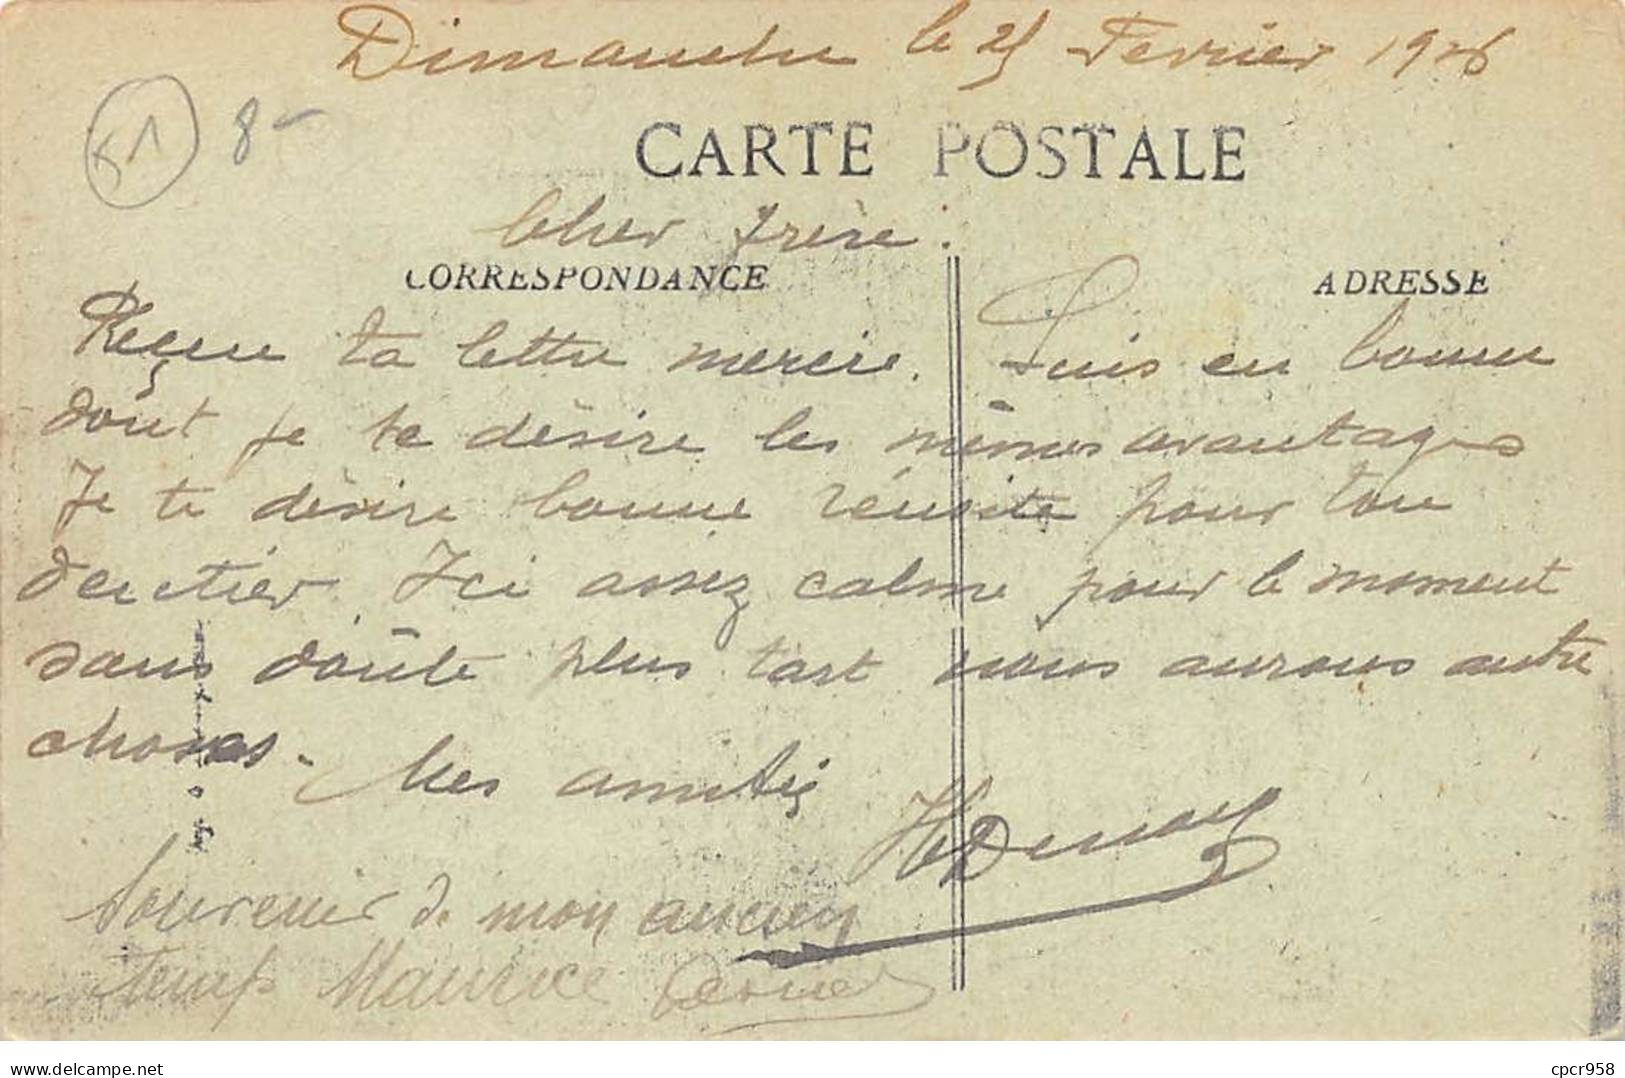 Dimanche le 25 Fevrier 19
51 8-
CARTE POSTALE
Cher frère.
CORRESPONDANCE ADRESSE
Reçu ta lettre mercie. Suis en bonne
dont je te désire les mêmes avantages
Je te désire bonne réusite pour ton
dentier. Ici assez calme pour le moment
sans doûte plus tart nous aurons autre
choses. Mes amitiés
Souvenir de mon ancien
temps Maurice
delcampe.net cpcr958